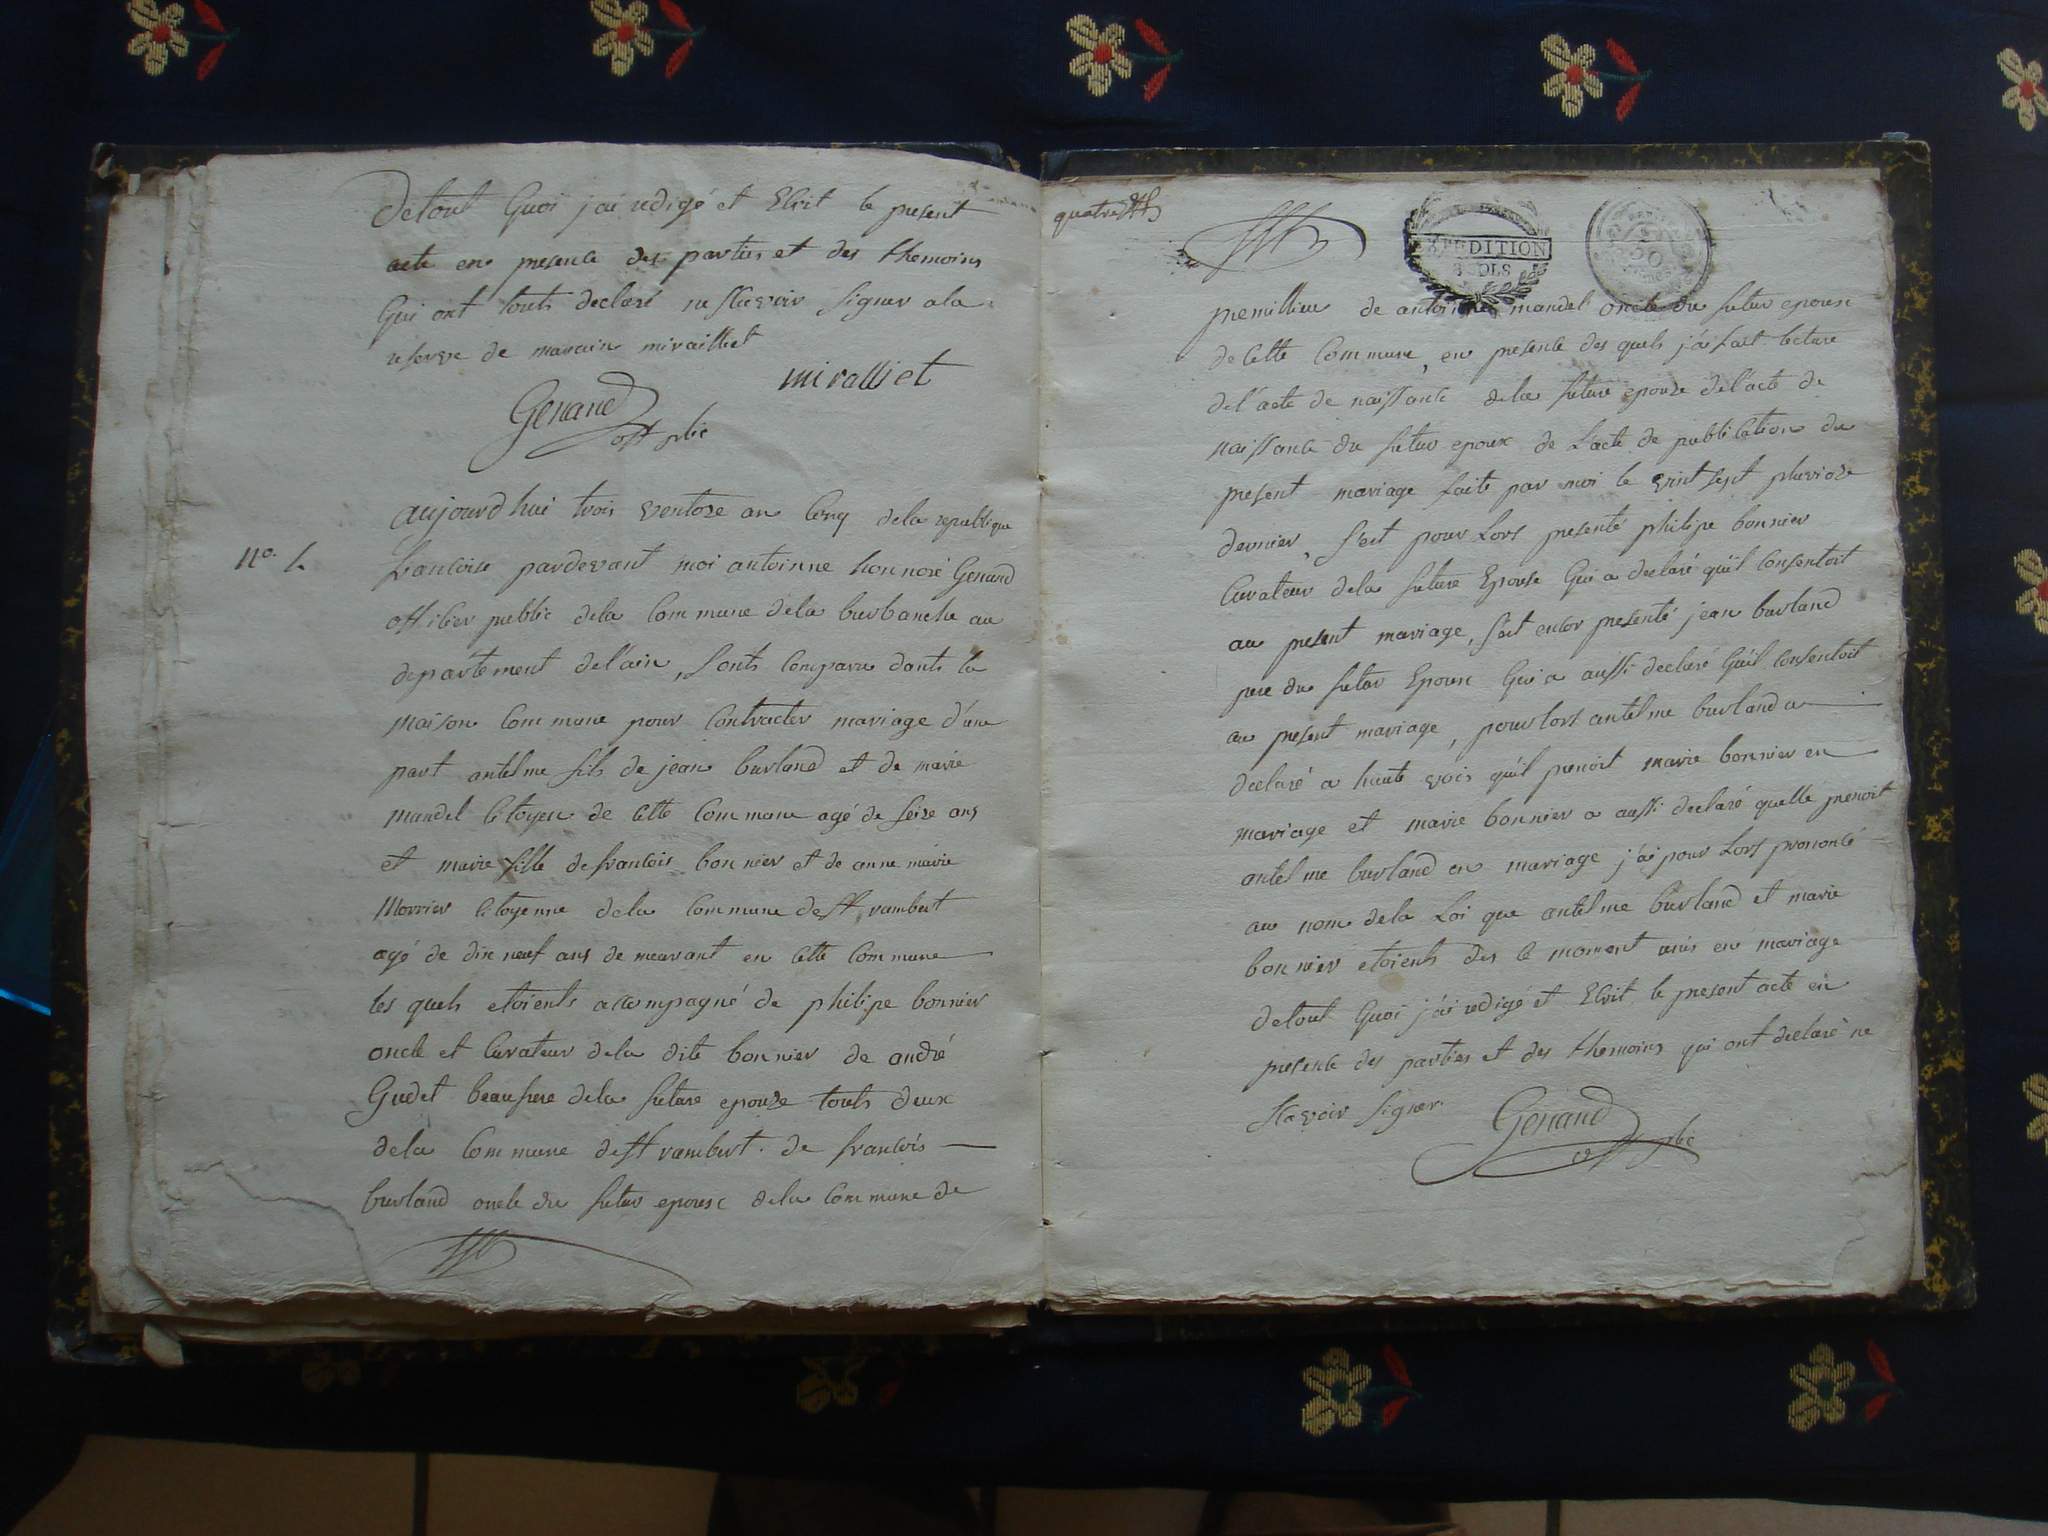 detout Quoi j'ai redigé et Ecrit le present
acte en presence des parties et des themoins
Qui ont touts declaré ne scavoir signer a la
reserve de mirailliet
miralliet
Genand
off plic
aujourd'hui trois ventose an cinq dela republique
francoise pardevant moi antoinne honnoré Genand
officier public dela commune dela burbanche au
departement del'ain, sonts comparu dants la
maison commune pour contracter mariage d'une
part antelme fils de jean burland et de marie
mandel citoyen de cette commune agé de seize ans
et marie fille defrancois bonnier et de anne marie
Morrier citoyenne dela commune de st rambert
agé de dix neuf ans demeurant en cette commune
les quels etoients accompagné de philipe bonnier
oncle et curateur dela dite bonnier de andré
Gudet beaufrere dela future epouze touts deux
dela commune de st rambert. de francois
burland oncle du futur epoux dela commune de
n°.
quatre
EXPEDITION
8 SOLS
50
premillieu de antoinne mandel oncle du futur epoux
de cette commune, en presence des quels j'ai fait lecture
del'acte de naissance dela future epouze del'acte de
naissance du futur epoux de L'acte de publication du
present mariage faite par moi le vint sept pluvioze
dernier, s'est pour Lors presenté philipe bonnier
Curateur dela future Epouse Qui a declaré qu'il consentoit
au present mariage, s'est encor presenté jean burland
pere du futur Epoux Qui a aussi declaré Qu'il consentoit
au present mariage, pourlors antelme burland a
declaré a haute vois qu'il prenoit marie bonnier en
mariage et marie bonnier a aussi declaré quelle prenoit
antelme burland en mariage j'ai pour Lors prononcé
au nom dela Loi que antelme burland et marie
bonnier etoients des ce moment unis en mariage
detout Quoi j'ai redigé et Ecrit le present acte en
presence des parties et des themoins qui ont declaré ne
scavoir signer
Genand
off plic